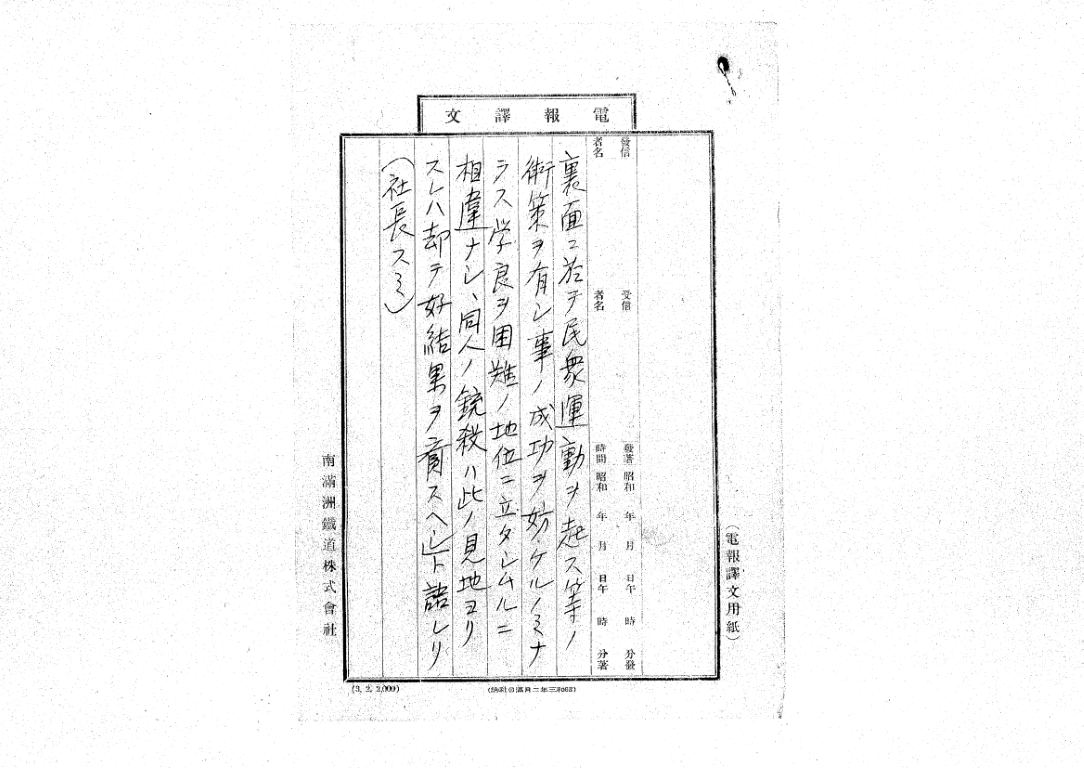 (電報譯文用紙)
電報譯文
發信者名
受信者名
發著時間
昭和 年 月 日午 時 分發
昭和 年 月 日午 時 分著
裏面ニ於テ民衆運動ヲ起ス等ノ
術策ヲ有シ事ノ成功ヲ妨ケルノミナ
ラス学良ヲ困難ノ地位ニ立タシムルニ
相違ナシ、同人ノ銃殺ハ此ノ見地ヨリ
スレハ却テ好結果ヲ齎スヘシ」ト語レリ
(社長スミ)
南滿洲鐵道株式會社
(3. 2. 2,000)